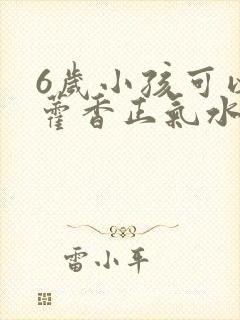 6歲小孩可以
藿香正氣水
雷小平